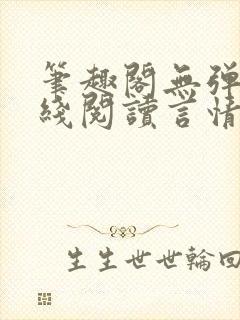 筆趣閣無弹
綫閱讀言情
生生世世輪回